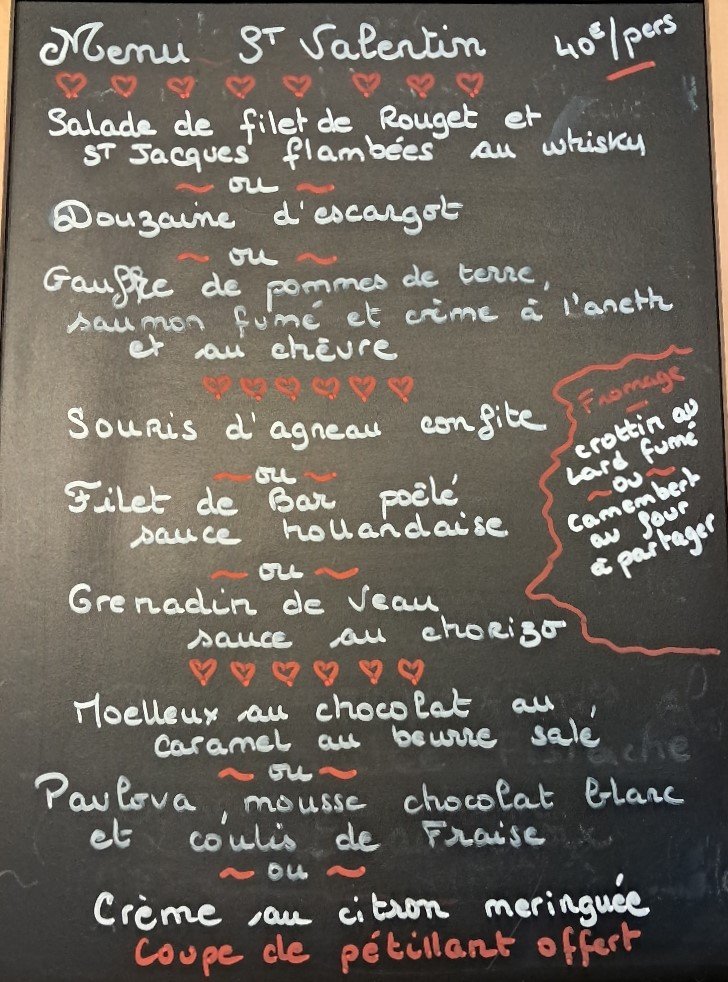 Menu ST Valentin 40€/pers
Salade de filet de Rouget et
ST Jacques flambées au whisky
~ ou ~
Douzaine d'escargot
~ ou ~
Gauffre de pommes de terre,
saumon fumé et crème à l'aneth
et au chèvre
Souris d'agneau confite
~ ou ~
Filet de Bar poêlé
sauce hollandaise
~ ou ~
Grenadin de Veau
sauce au chorizo
Fromage
crottin au
lard fumé
~ ou ~
Camembert
au four
à partager
Moelleux au chocolat au
caramel au beurre salé
~ ou ~
Pavlova, mousse chocolat blanc
et coulis de Fraise
~ ou ~
Crème au citron meringuée
Coupe de pétillant offert